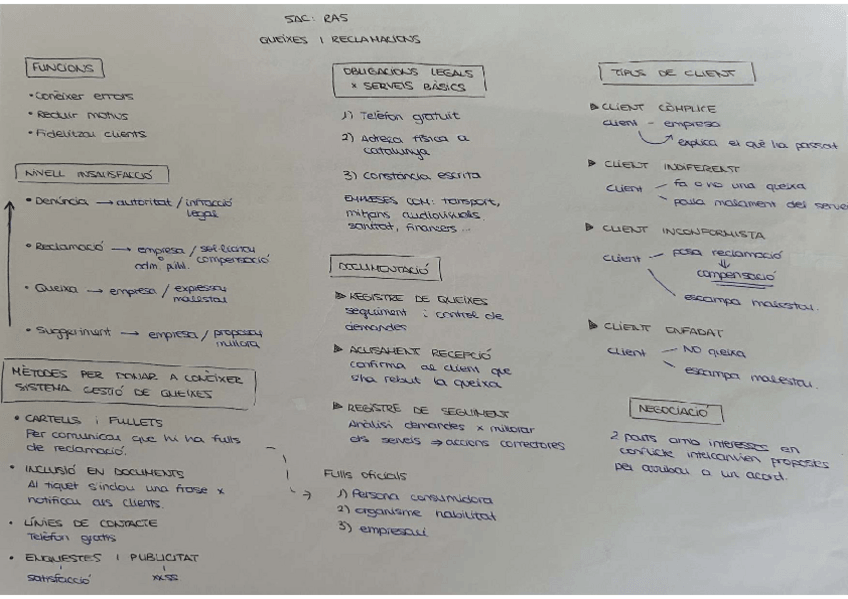 SAC: RA5
QUEIXES I RECLAMACIONS
FUNCIONS
• Conèixer errors
• Reduir motius
• Fidelitzar clients
NIVELL INSATISFACCIÓ
• Denúncia → autoritat / infracció
legal
• Reclamació → empresa / sol·licitar
o adm. públ. compensació
• Queixa → empresa / expressar
malestar
• Suggeriment → empresa / proposar
millora
MÈTODES PER DONAR A CONÈIXER
SISTEMA GESTIÓ DE QUEIXES
• CARTELLS i FULLETS
Per comunicar que hi ha fulls
de reclamació.
• INCLUSIÓ EN DOCUMENTS
Al tiquet s'inclou una frase x
notificar als clients.
• LÍNIES DE CONTACTE
Telèfon gratis
• ENQUESTES I PUBLICITAT
satisfacció xxss
OBLIGACIONS LEGALS
x SERVEIS BÀSICS
1) Telèfon gratuït
2) Adreça física a
catalunya
3) Constància escrita
EMPRESES COM: transport,
mitjans audiovisuals
sanitat, financers...
DOCUMENTACIÓ
REGISTRE DE QUEIXES
seguiment i control de
demandes
ACUSAMENT RECEPCIÓ
confirma al client que
s'ha rebut la queixa
REGISTRE DE SEGUIMENT
Anàlisi demandes x millorar
els serveis ⇒ accions correctores
Fulls oficials
1) Persona consumidora
2) organisme habilitat
3) empresari
TIPUS DE CLIENT
CLIENT CÒMPLICE
client - empresa
explica el què ha passat
CLIENT INDIFERENT
client - fa o no una queixa
parla malament del servei
CLIENT INCONFORMISTA
client - posa reclamació
⇓
compensació
escampa malestar.
CLIENT ENFADAT
client - NO queixa
escampa malestar.
NEGOCIACIÓ
2 parts amb interessos en
conflicte intercanvien propostes
per arribar a un acord.